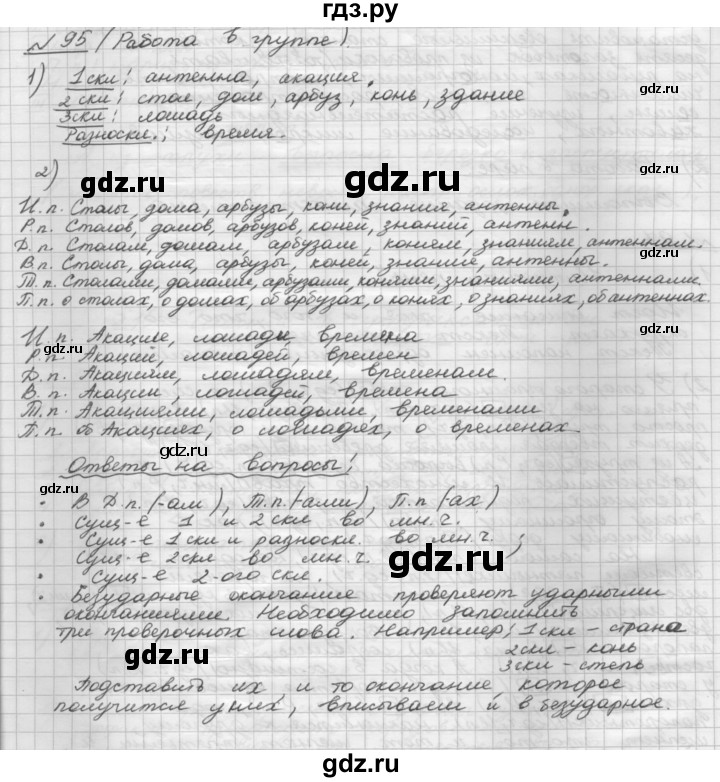 гдз.ру
№ 95 (Работа в группе).
1) 1скл: антенна, акация.
gdz.ru
2 скл: стол, дом, арбуз, конь, здание
3скл: лошадь
gdz.ru
Разноскл.: время.
gdz.ru
2)
gdz.ru
gdz.ru
И.п. Столы, дома, арбузы, кони, знания, антенны.
Р.п. Столов, домов, арбузов, коней, знаний, антенн.
Д.п. Столам, домам, арбузам, коням, знаниям, антеннам.
gdz.ru
В.п. Столы, дома, арбузы, коней, знания, антенны.
Т.п. Столами, домами, арбузами, конями, знаниями, антеннами.
П.п. о столах, о домах, об арбузах, о конях, о знаниях, об антеннах.
И.п. Акации, лошади, времена
gdz.ru
gdz.ru
Р.п. Акаций, лошадей, времен
Д.п. Акациям, лошадям, временам.
В.п. Акации, лошадей, времена
Т.п. Акациями, лошадьми, временами
П.п. об Акациях, о лошадях, о временах.
gdz.ru
Ответы на вопросы:
gdz.ru
• В Д.п. (-ам), Т.п. (-ами), П.п. (-ах)
• Сущ-е 1 и 2 скл во мн.ч.
• Сущ-е 1 скл и разноскл. во мн.ч.;
Сущ-е 2скл во мн.ч.
gdz.ru
• Сущ-е 2-ого скл.
• Безударные окончания проверяют ударными
окончаниями. Необходимо запомнить
три проверочных слова. Например: 1скл – страна
gdz.ru
2скл – конь
gdz.ru
3скл – степь
Подставить их, и то окончание, которое
получится у них, вписываем и в безударное.
gdz.ru